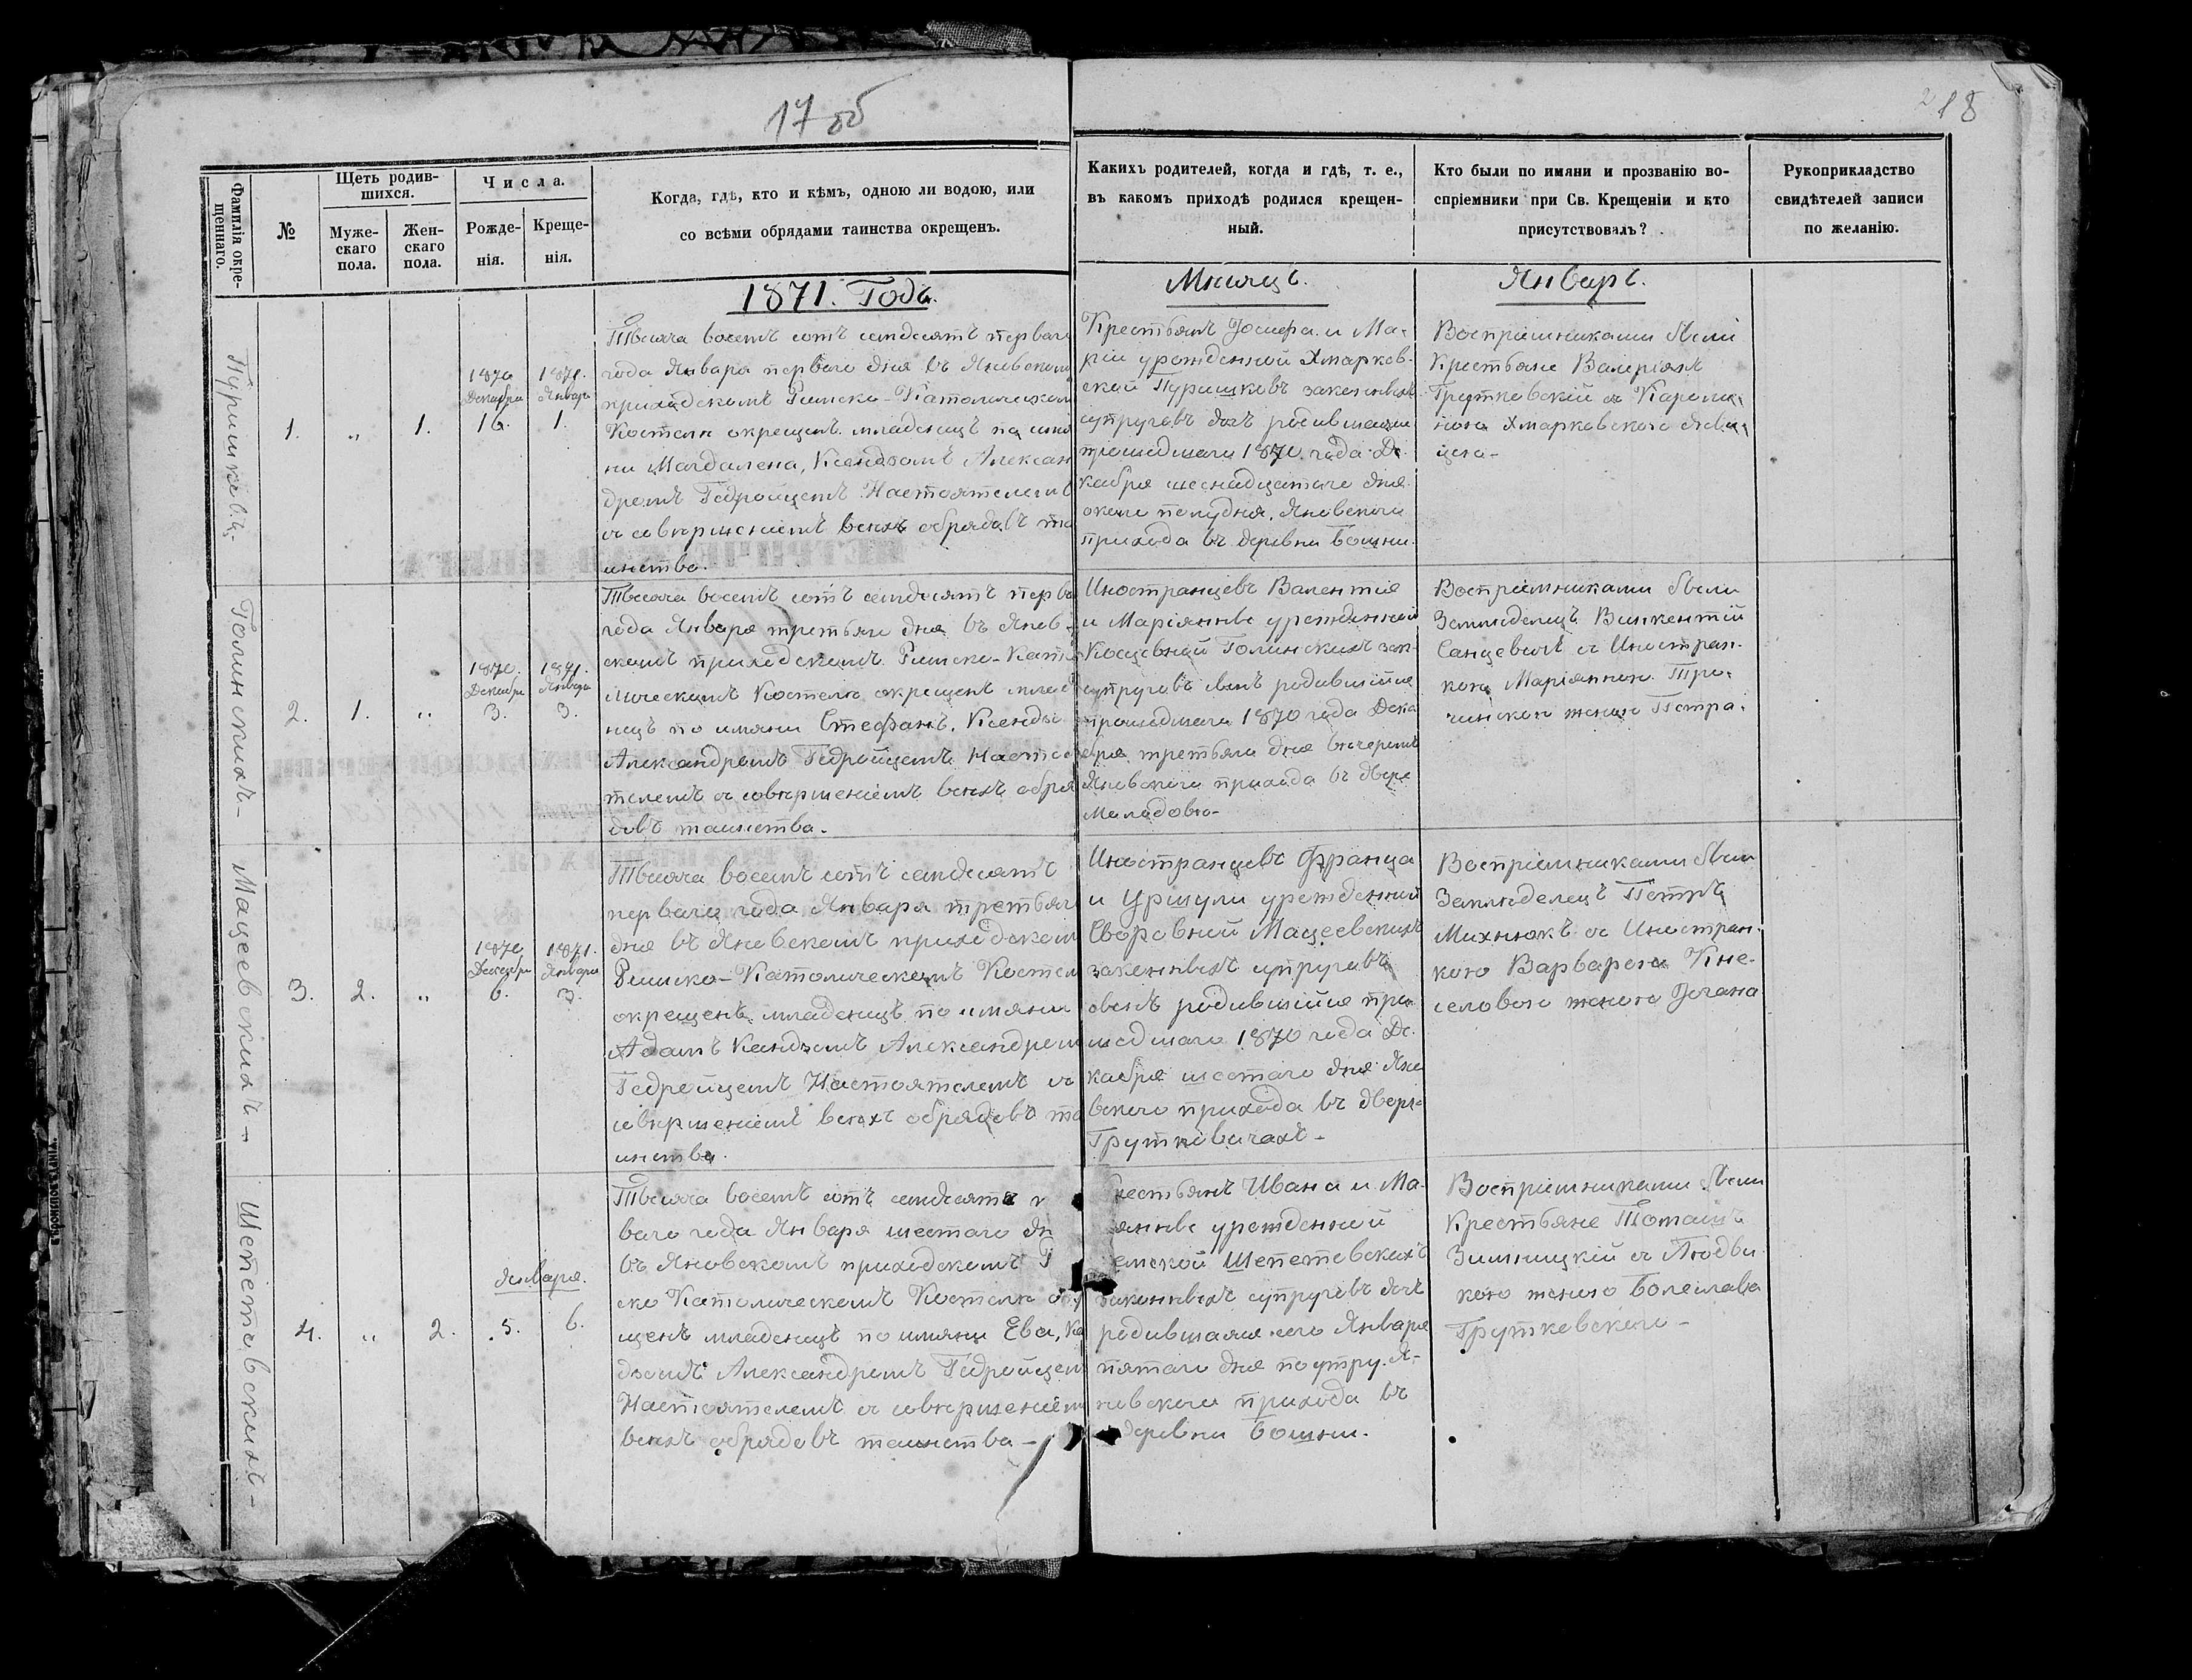 17 об
2 18
Фамилія окре-
щеннаго.
№
Щеть родив-
шихся.
Муже-
скаго
пола.
Жен-
скаго
пола.
Числа.
Рожде-
нія.
Креще-
нія.
Когда, гдѣ, кто и кѣмъ, одною ли водою, или
со всѣми обрядами таинства окрещенъ.
Какихъ родителей, когда и гдѣ, т. е.,
въ какомъ приходѣ родился крещен-
ный.
Кто были по имяни и прозванію во-
спріемники при Св. Крещеніи и кто
присутствовалъ?
Рукоприкладство
свидѣтелей записи
по желанію.
1871. Годъ.
Мѣсяцъ.
Январь.
1.
„
1.
1870
Декабря
16.
1871.
Января
1.
Тысяча восемь сотъ семдесятъ перваго
года Января перваго дня въ Яновскомъ
приходскомъ Римско-Католическом
Костелѣ окрещенъ младенецъ по имя
ни Магдалена, Ксендзомъ Алексан
дромъ Гедройцемъ Настоятелемъ
съ совершеніемъ всѣхъ обрядовъ та
инства.
Крестьянъ Іосифа и Ма-
ріи урожденной Хмарков-
ской Пуришковъ законныхъ
супруговъ дочь родившаяся
прошедшаго 1870 года Де
кабря шеснадцатаго дня
около полудня, Яновского
прихода въ деревни Бошни.
Воспріемниками были
Крестьяне Валеріянъ
Грутковскій съ Кароли-
ною Хмарковскою дѣви-
цею-
Голинскихъ-
2.
1.
„
1870.
Декабря
3.
1871.
Января
3.
Тысяча восемь сотъ семдесятъ перва
года Января третьяго дня въ Янов-
скомъ приходскомъ Римско-Като
лическомъ Костелѣ окрещенъ млад
нецъ по имяни Стефанъ, Ксендзо
Александромъ Гедройцемъ Настоя
телемъ съ совершеніемъ всѣхъ обря
довъ таинства.
Иностранцевъ Валентія
и Маріянны урожденной
Голинскихъ зак.
супруговъ сынъ родившійся
прошедшаго 1870 года Дека
бря третьяго дня вечеромъ
Яновскаго прихода въ дворѣ
Воспріемниками были
Земледѣлецъ Викентій
Санцевичъ съ Иностран-
кою Маріянною
женою Петра.
Мацеевскихъ-
3.
2.
„
1870
Декабря
6.
1871.
Января
3.
Тысяча восемь сотъ семдесятъ
перваго года Января третьяг
дня въ Яновскомъ приходском
Римско-Католическомъ Костел
окрещенъ младенецъ по имяни
Адамъ Ксендзомъ Александром
Гедройцемъ Настоятелемъ съ
совершеніемъ всѣхъ обрядовъ та
инства.
Иностранцевъ Франца
и Уршули урожденной
Мацеевскихъ
законныхъ супруговъ
сынъ родившійся про
шедшаго 1870 года Де
кабря шестаго дня Яно
вского прихода въ дворѣ
Грутковичахъ-
Воспріемниками были
Земледѣлецъ Петръ
Михнюкъ съ Иностран-
кою Варварою Кне-
селовою женою Іогана
Шепетовскихъ-
4.
„
2.
Января.
5.
6.
Тысяча восемь сотъ семдесятъ п
ваго года Января шестаго дн
въ Яновскомъ приходскомъ Р
ско Католическомъ Костелѣ окр
щенъ младенецъ по имяни Ева, Кс
дзомъ Александромъ Гедройцем
Настоятелемъ съ совершеніем
всѣхъ обрядовъ таинства-
рестьянъ Ивана и Ма-
янны урожденной
емской Шепетовскихъ
законныхъ супруговъ дочь
родившаяся сего Января
пятаго дня по утру. Я-
новского прихода въ
деревни Бошни.
Воспріемниками были
Крестьяне Томашъ
Зимницкій съ Людви
кою женою Болеслава
Грутковскаго-